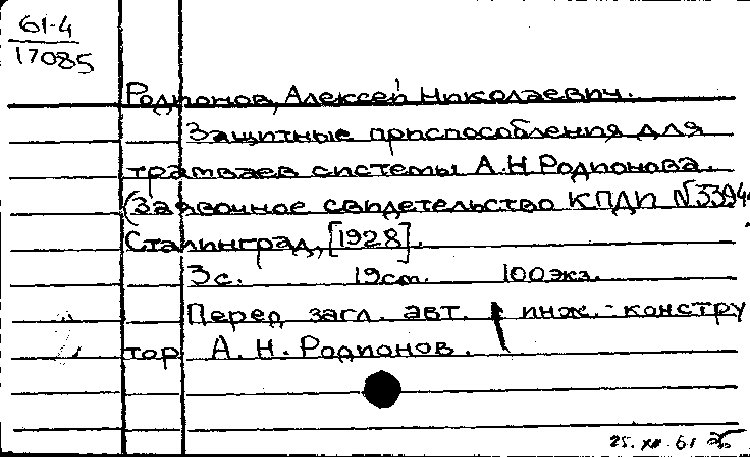 61-4
17085
Родионов, Алексей Николаевич.
Защитные приспособления для
трамваев системы А.Н Родионова.
(Заявочное свидетельство КПДИ №3394
Сталинград, [1928].
3 с. 19 ст. 100 экз.
Перед загл. авт. : инж.-констру
тор А. Н. Родионов.
25. XII. 61